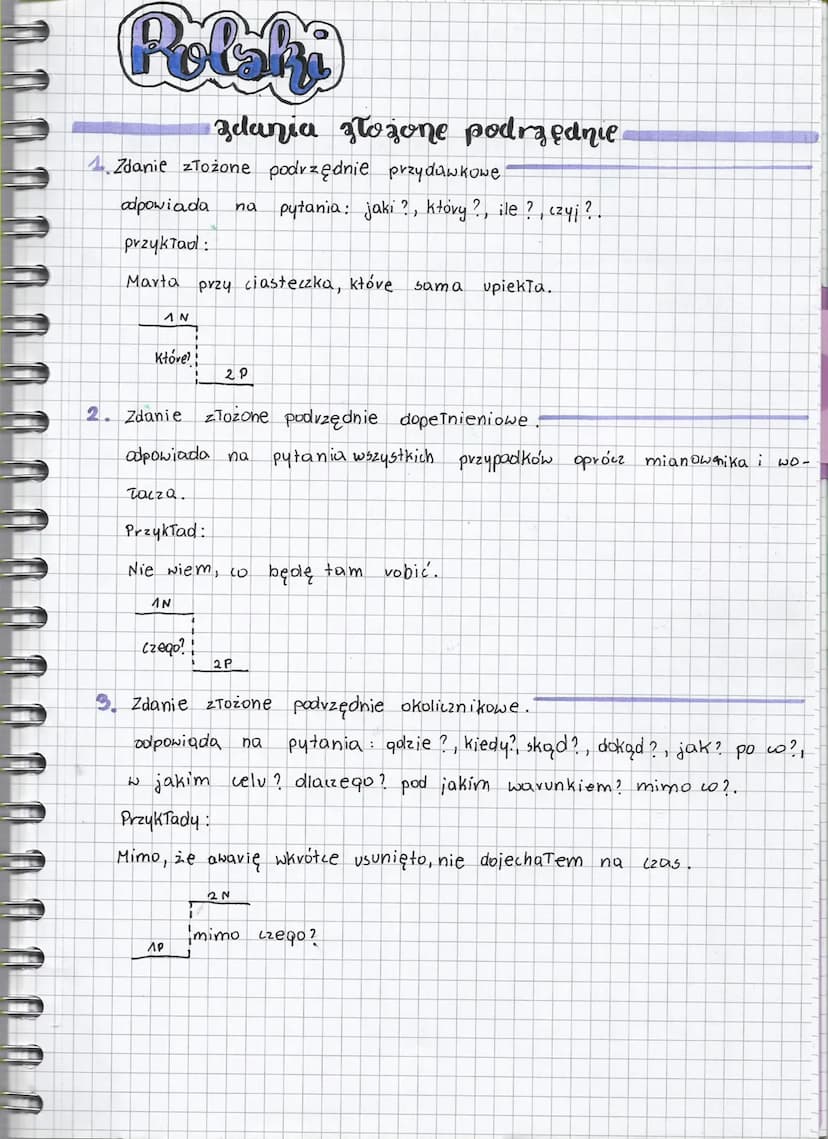 Polski
zdania złożone podrzędnie
1. Zdanie złożone podrzędnie przydawkowe
odpowiada na pytania: jaki?, który?, ile?, czyj?.
przykład:
Marta przy ciasteczka, które sama upiekła.
1N
Które?
2P
2. Zdanie złożone podrzędnie dopełnieniowe.
odpowiada na pytania wszystkich przypadków oprócz mianownika i wo-
łacza.
Przykład:
Nie wiem, co będę tam robić.
1N
czego?
2P
3. Zdanie złożone podrzędnie okolicznikowe.
odpowiada na pytania: gdzie?, kiedy?, skąd?, dokąd?, jak? po co?,
w jakim celu? dlaczego? pod jakim warunkiem? mimo co?.
Przykłady:
Mimo, że awarię wkrótce usunięto, nie dojechałem na czas.
2N
mimo czego?
1P